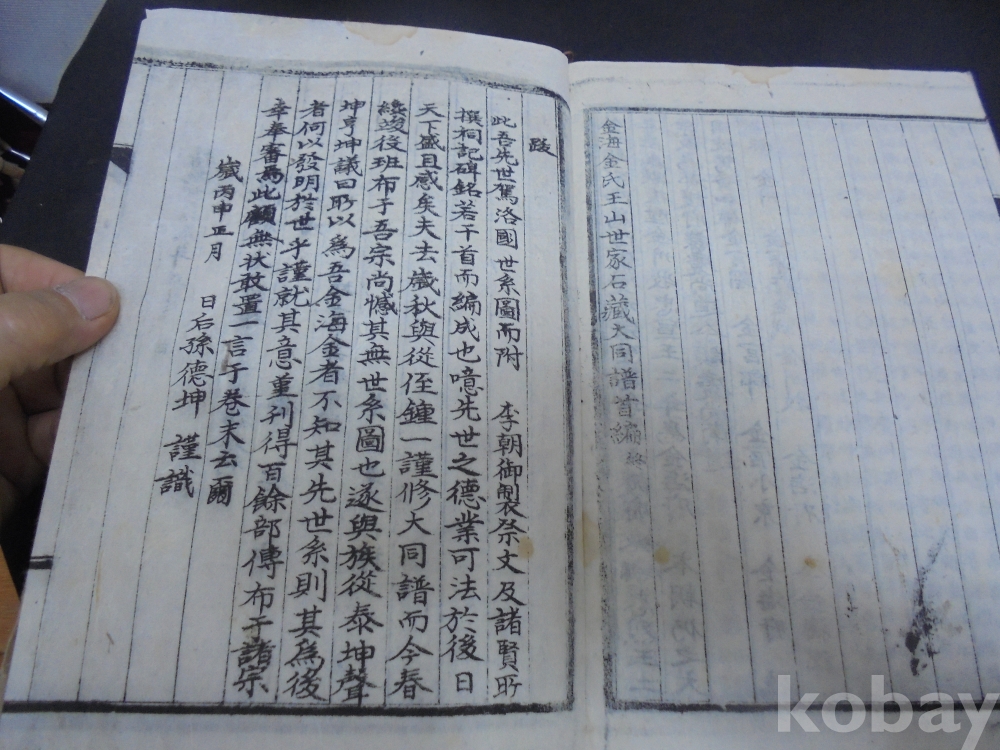 金海金氏王山世家石藏大同譜首編終
跋
此吾先世駕洛國世系圖而附 李朝御製祭文及諸賢所
撰祠記碑銘若干首而編成也噫先世之德業可法於後日
天下盛且感矣夫去歲秋與從侄鍾一謹修大同譜而今春
纔竣役班布于吾宗尚憾其無世系圖也遂與族從泰坤聲
坤亨坤議曰所以爲吾金海金者不知其先世系則其爲後
者何以發明於世乎謹就其意重刊得百餘部傳布于諸宗
幸奉審焉此顧無狀敢置一言于卷末云爾
歲丙申正月 日后孫德坤 謹識
kobay